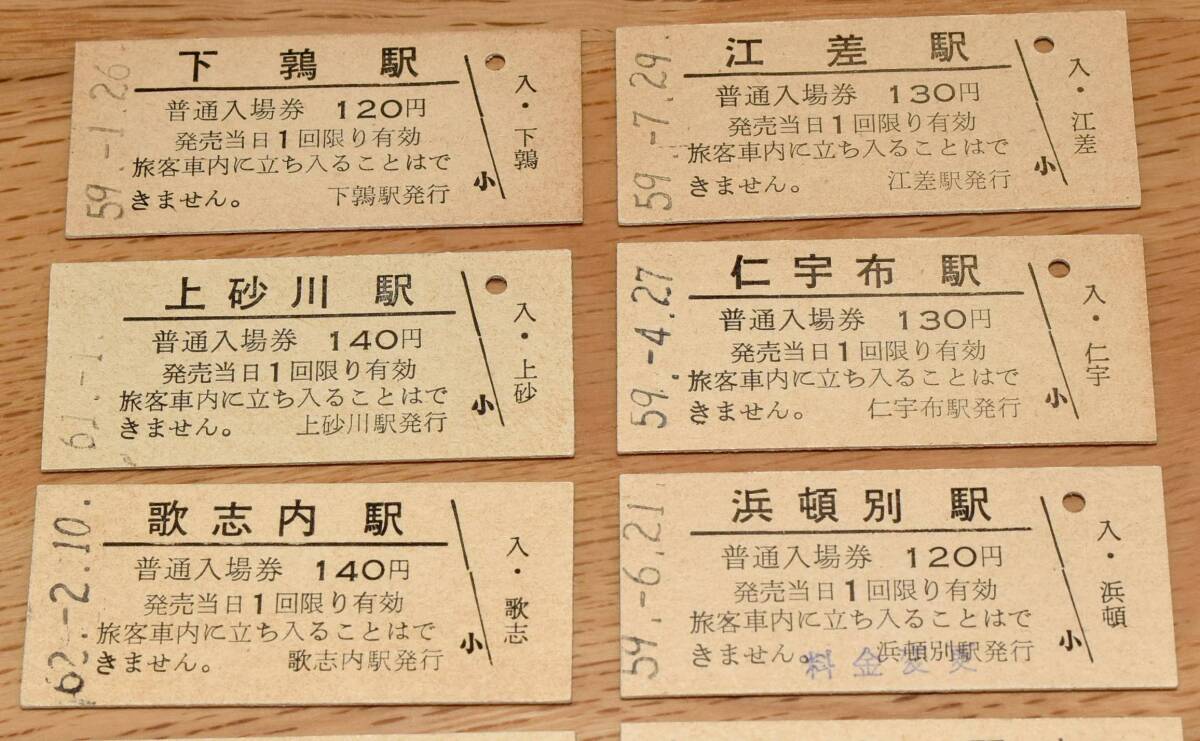 下鶉駅
普通入場券 120円
発売当日1回限り有効
旅客車内に立ち入ることはで
きません。 下鶉駅発行
59.-1.26.
小
入・下鶉
江差駅
普通入場券 130円
発売当日1回限り有効
旅客車内に立ち入ることはで
きません。 江差駅発行
59.-7.29.
小
入・江差
上砂川駅
普通入場券 140円
発売当日1回限り有効
旅客車内に立ち入ることはで
きません。 上砂川駅発行
61.-1.
小
入・上砂
仁宇布駅
普通入場券 130円
発売当日1回限り有効
旅客車内に立ち入ることはで
きません。 仁宇布駅発行
59.-4.27
小
入・仁宇
歌志内駅
普通入場券 140円
発売当日1回限り有効
旅客車内に立ち入ることはで
きません。 歌志内駅発行
63.-2.10.
小
入・歌志
浜頓別駅
普通入場券 120円
発売当日1回限り有効
旅客車内に立ち入ることはで
きません。 浜頓別駅発行
料金変更
59.-6.21
小
入・浜頓